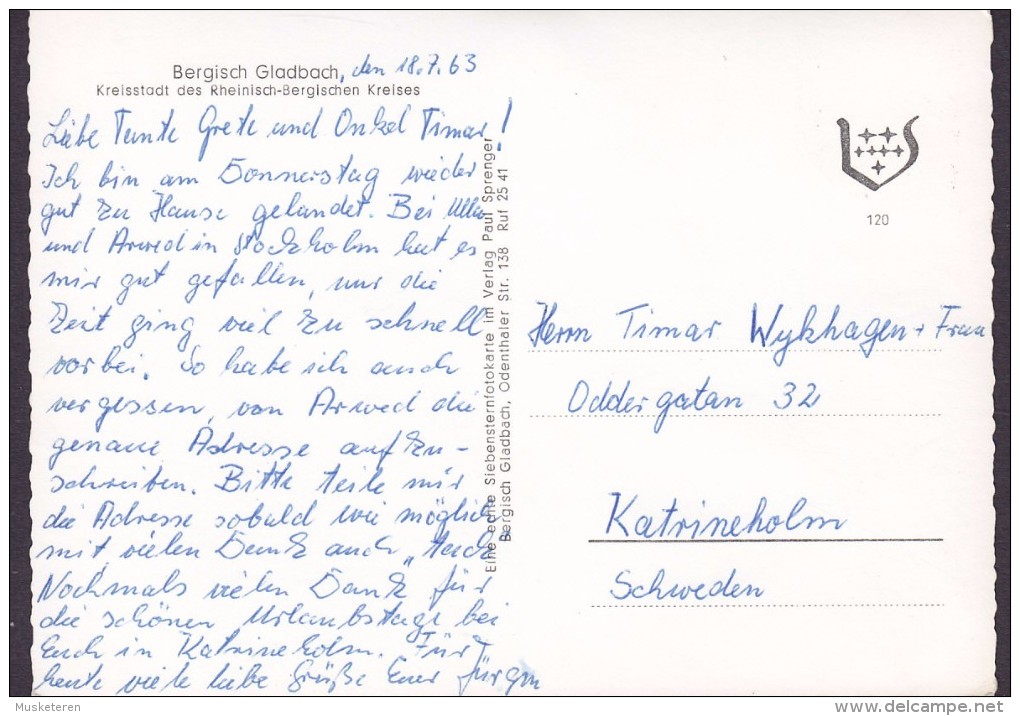 Bergisch Gladbach, den 18.7.63
Kreisstadt des Rheinisch-Bergischen Kreises
Liebe Tante Grete und Onkel Timar!
Ich bin am Donnerstag wieder
gut zu Hause gelandet. Bei Ulla
und Arwed in Stockholm hat es
mir gut gefallen, nur die
Zeit ging viel zu schnell
vorbei. So habe ich auch
vergessen, von Arwed die
genaue Adresse aufzu-
schreiben. Bitte teile mir
die Adresse sobald wie möglich
mit, vielen Dank auch
Nochmals vielen Dank für
die schönen Urlaubstage bei
Euch in Katrineholm. Für
heute viele liebe Grüße Euer Jürgen
Eine echte Siebensternfotokarte im Verlag Paul Sprenger
Bergisch Gladbach, Odenthaler Str. 138 Ruf 25 41
LS
120
Herrn Timar Wykhagen + Frau
Oddergatan 32
Katrineholm
Schweden
Musketeren
delcampe.net